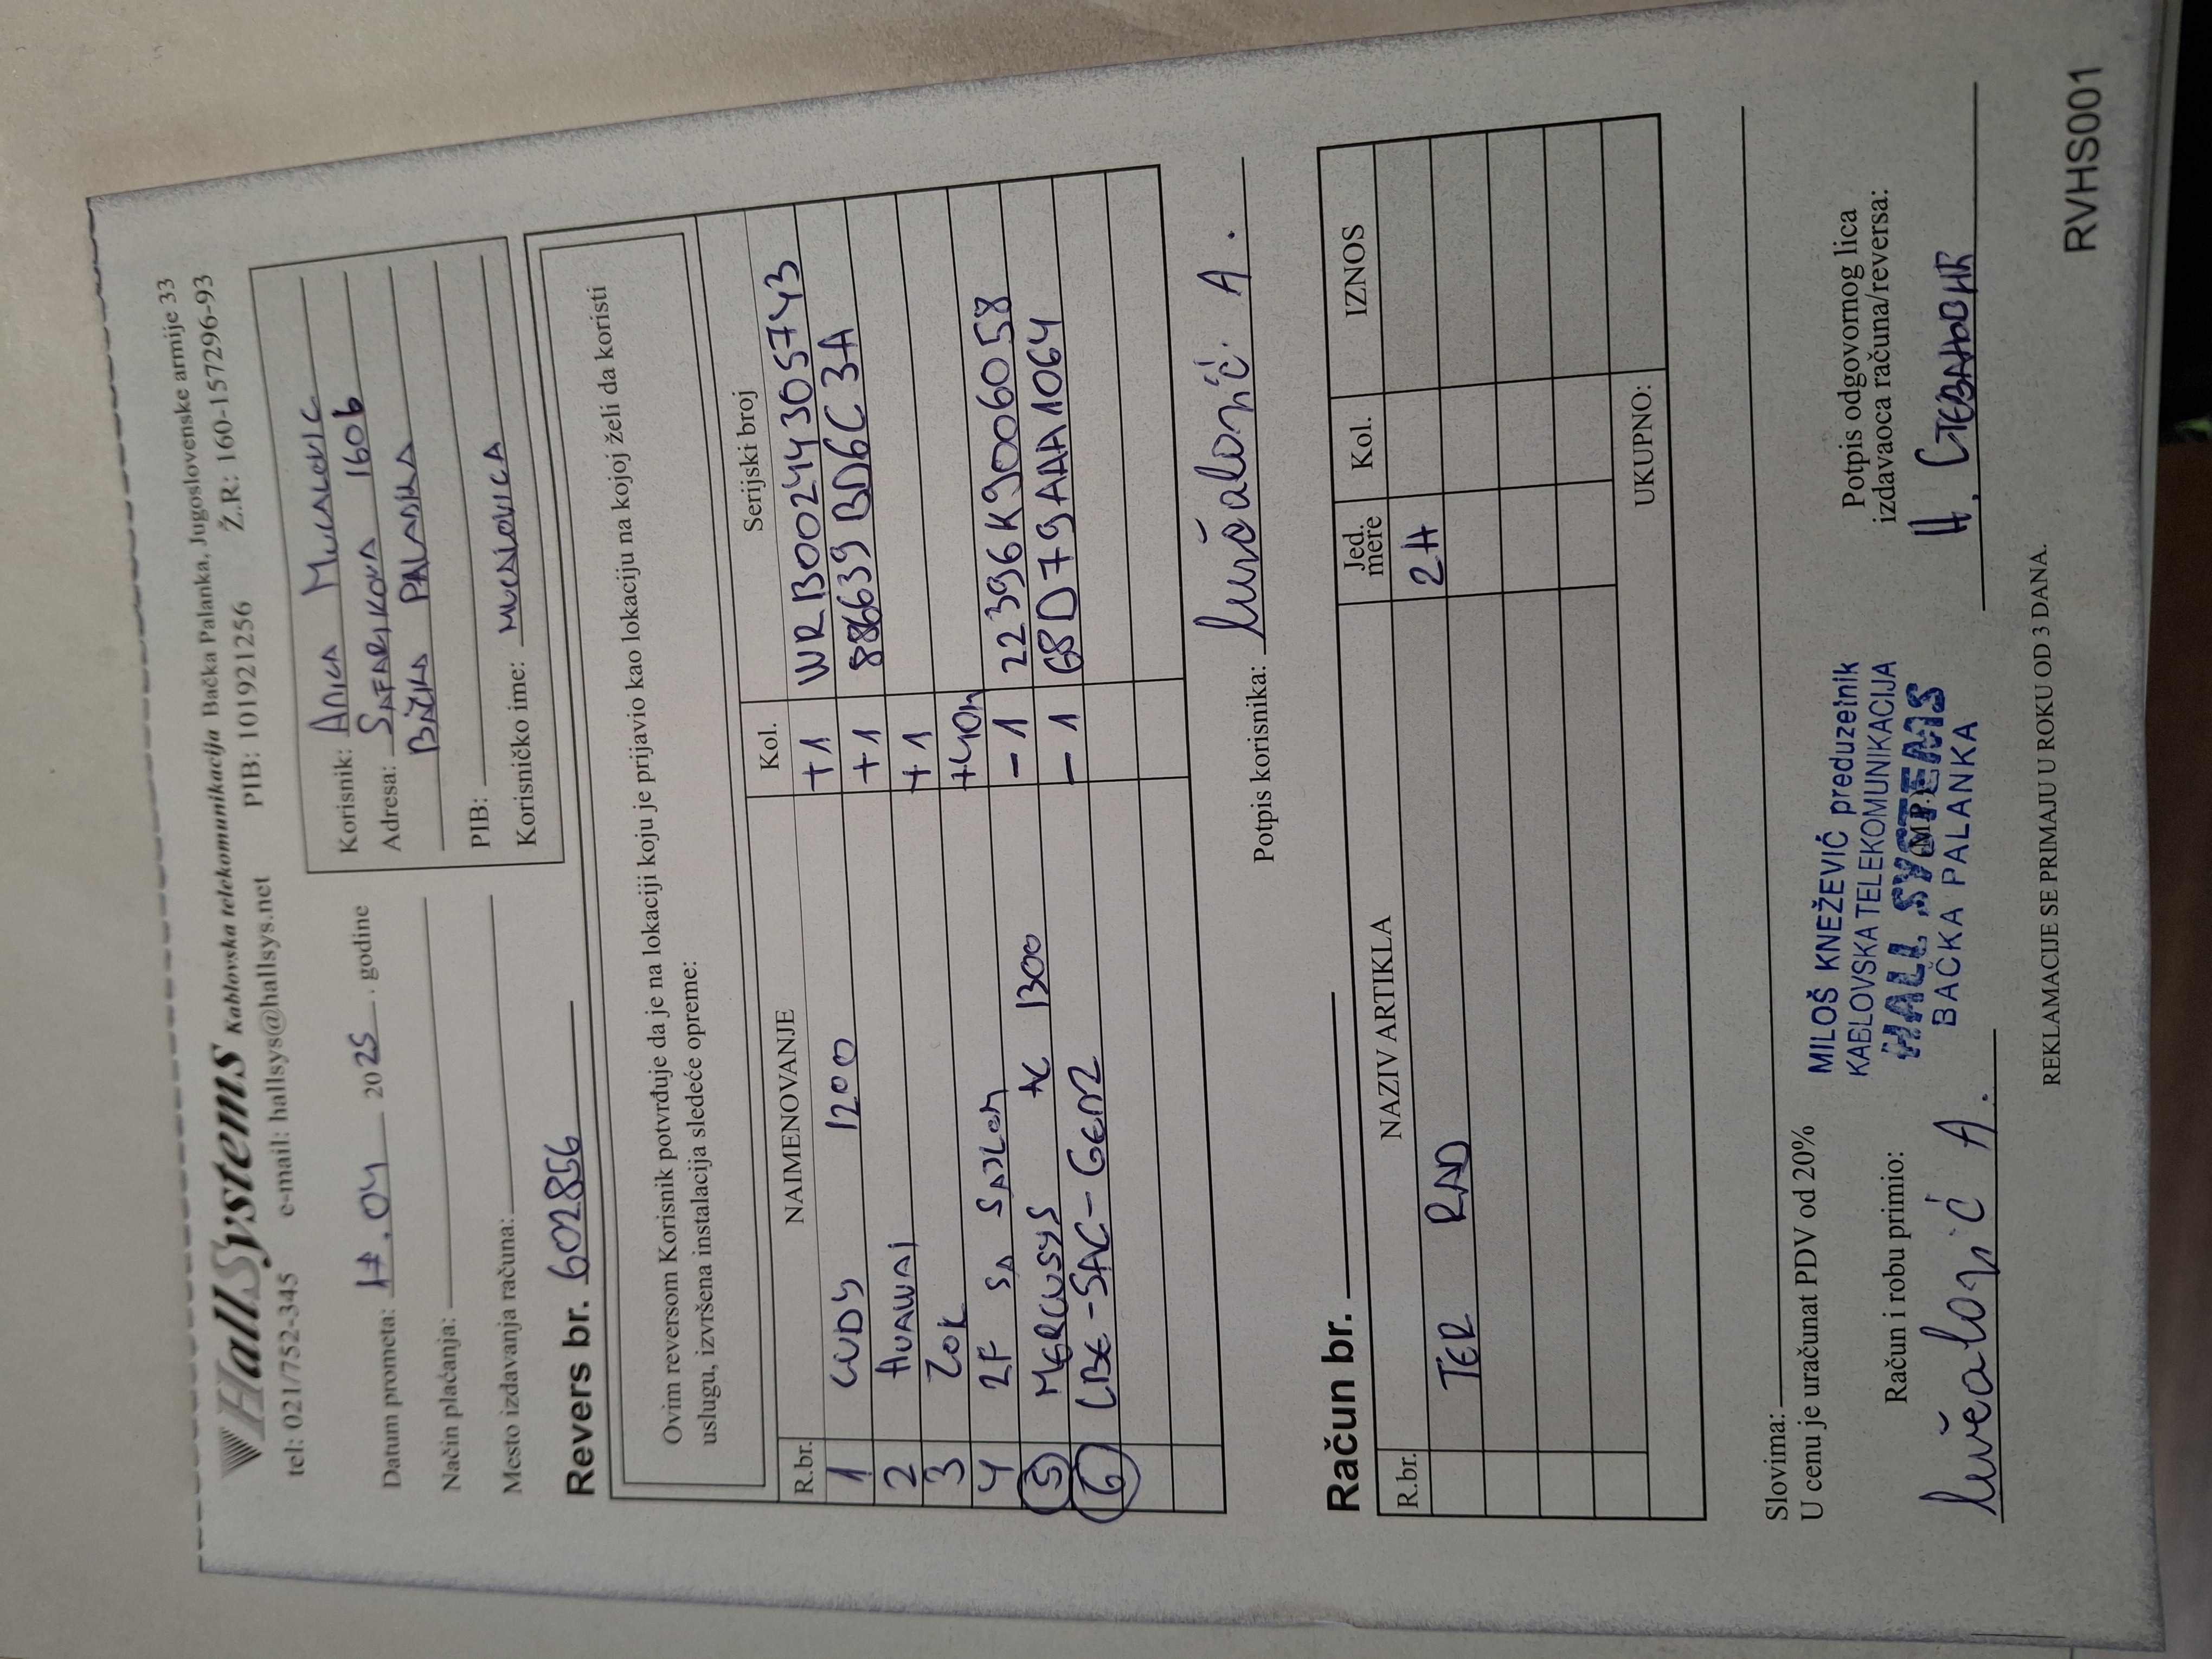 HallSystems Kablovska telekomunikacija Bačka Palanka, Jugoslovenske armije 33
tel: 021/752-345 e-mail: hallsys@hallsys.net PIB: 101921256 Ž.R: 160-157296-93
Datum prometa: 17.04 2025. godine
Način plaćanja:
Mesto izdavanja računa:
Korisnik: ANICA MUCALOVIC
Adresa: SAFARIKOVA 160b
BAČKA PALANKA
PIB:
Korisničko ime: MUCALOVICA
Revers br. 602856
Ovim reversom Korisnik potvrđuje da je na lokaciji koju je prijavio kao lokaciju na kojoj želi da koristi
uslugu, izvršena instalacija sledeće opreme:
R.br. NAIMENOVANJE Kol. Serijski broj
1 CUDY 1200 +1 WR1300244305743
2 HUAWAI +1 886639BD6C3A
3 ZOK +1
4 2F SA SAJLOM +40m
5 MERCUSYS AC 1300 -1 22396K9006058
6 LBE-5AC-GEN2 -1 68D79AAA1064
Potpis korisnika: Mučalović A.
Račun br.
R.br. NAZIV ARTIKLA Jed. mere Kol. IZNOS
TER RAD 2H
UKUPNO:
Slovima:
U cenu je uračunat PDV od 20%
Račun i robu primio:
Mučalović A.
MILOŠ KNEŽEVIĆ preduzetnik
KABLOVSKA TELEKOMUNIKACIJA
HALL SYSTEMS
(M.P.)
BAČKA PALANKA
Potpis odgovornog lica
izdavaoca računa/reversa:
Н. СТЕВАНОВИЋ
REKLAMACIJE SE PRIMAJU U ROKU OD 3 DANA.
RVHS001